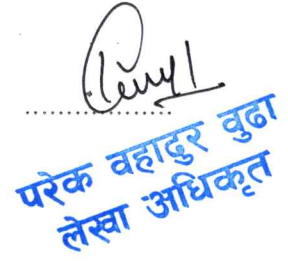 परेक वहादुर वुढा
लेखा अधिकृत